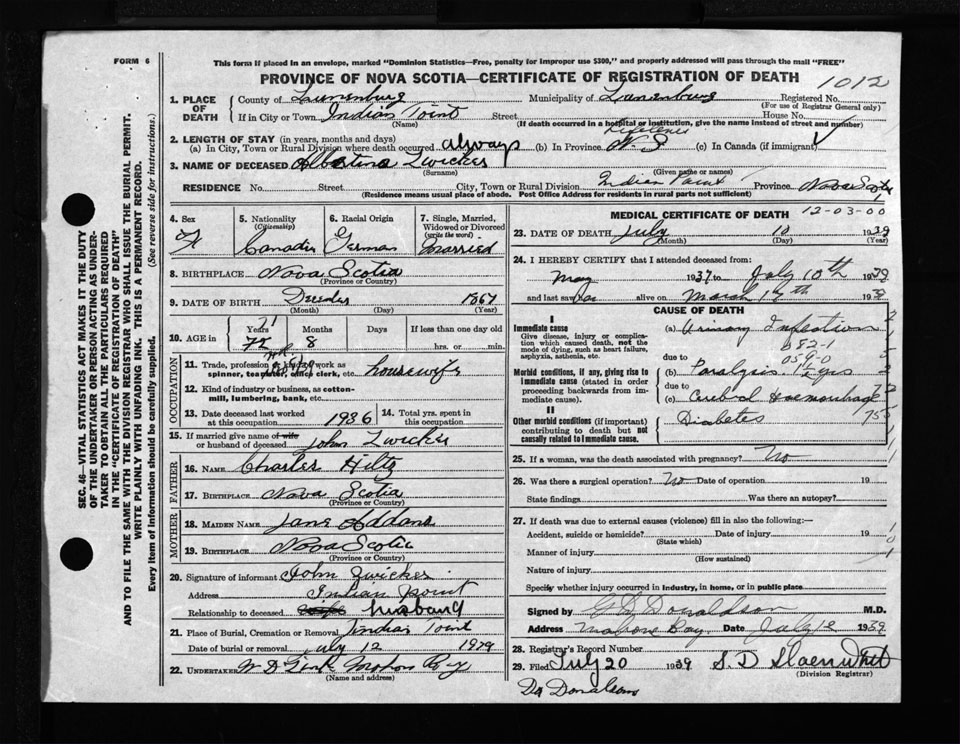 FORM 6
This form if placed in an envelope, marked "Dominion Statistics—Free, penalty for improper use $300," and properly addressed will pass through the mail "FREE"
PROVINCE OF NOVA SCOTIA—CERTIFICATE OF REGISTRATION OF DEATH
1012
1. PLACE OF DEATH
County of Lunenburg Municipality of Lunenburg Registered No.
(For use of Registrar General only)
If in City or Town Indian Point Street House No.
(Name) (If death occurred in a hospital or institution, give the name instead of street and number)
2. LENGTH OF STAY (in years, months and days)
(a) In City, Town or Rural Division where death occurred always (b) In Province N.S (c) In Canada (if immigrant) ✓
3. NAME OF DECEASED Albertina Zwicker
(Surname) (Given name or names)
RESIDENCE No. Street City, Town or Rural Division Indian Point Province Nova Scotia
(Residence means usual place of abode. Post Office Address for residents in rural parts not sufficient)
4. Sex
F
5. Nationality
(Citizenship)
Canadian
6. Racial Origin
German
7. Single, Married, Widowed or Divorced
(write the word)
Married
8. BIRTHPLACE Nova Scotia
(Province or Country)
9. DATE OF BIRTH 1867
(Month) (Day) (Year)
10. AGE in Years Months Days If less than one day old
71
72 8 hrs. or min.
OCCUPATION
11. Trade, profession or kind of work as spinner, teamster, office clerk, etc. housewife
12. Kind of industry or business, as cotton-mill, lumbering, bank, etc.
13. Date deceased last worked at this occupation 1936
14. Total yrs. spent in this occupation
15. If married give name of wife or husband of deceased John Zwicker
FATHER
16. NAME Charles Hiltz
17. BIRTHPLACE Nova Scotia
(Province or Country)
MOTHER
18. MAIDEN NAME Jane Addams
19. BIRTHPLACE Nova Scotia
(Province or Country)
20. Signature of informant John Zwicker
Address Indian Point
Relationship to deceased husband
21. Place of Burial, Cremation or Removal Indian Point
Date of burial or removal July 12 1939
22. UNDERTAKER Mahone Bay
(Name and address)
MEDICAL CERTIFICATE OF DEATH 12-03-00
23. DATE OF DEATH July 10 1939
(Month) (Day) (Year)
24. I HEREBY CERTIFY that I attended deceased from:
May 1937 to July 10th 1939
and last saw her alive on March 19th 1939
CAUSE OF DEATH
I
Immediate cause
Give disease, injury or complication which caused death, not the mode of dying, such as heart failure, asphyxia, asthenia, etc.
(a) Urinary Infection
082-1
due to 059-0
Morbid conditions, if any, giving rise to immediate cause (stated in order proceeding backwards from immediate cause).
(b) Paralysis 1½ yrs
due to
(c) Cerebral Haemorrhage
II
Other morbid conditions (if important) contributing to death but not causally related to immediate cause.
Diabetes
25. If a woman, was the death associated with pregnancy? No
26. Was there a surgical operation? No Date of operation 19
State findings Was there an autopsy?
27. If death was due to external causes (violence) fill in also the following:—
Accident, suicide or homicide? Date of injury 19
(State which)
Manner of injury
(How sustained)
Nature of injury
Specify whether injury occurred in industry, in home, or in public place
Signed by Donaldson M.D.
Address Mahone Bay Date July 12 1939
28. Registrar's Record Number
29. Filed July 20 1939 S. D
(Division Registrar)
Dr Donaldson
SEC. 46—VITAL STATISTICS ACT MAKES IT THE DUTY
OF THE UNDERTAKER OR PERSON ACTING AS UNDER-
TAKER TO OBTAIN ALL THE PARTICULARS REQUIRED
IN THE "CERTIFICATE OF REGISTRATION OF DEATH"
AND TO FILE THE SAME WITH THE DIVISION REGISTRAR WHO SHALL ISSUE THE BURIAL PERMIT.
WRITE PLAINLY WITH UNFADING INK. THIS IS A PERMANENT RECORD.
Every item of information should be carefully supplied. (See reverse side for instructions.)